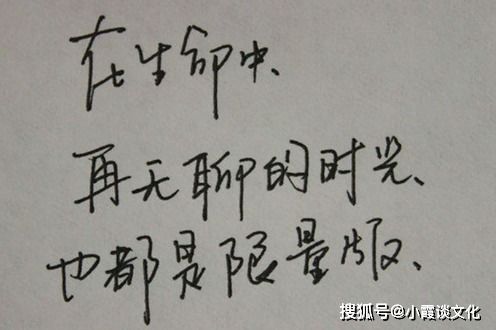 在生命中、
再无聊的时光、
也都是限量版、
搜狐号@小霞谈文化